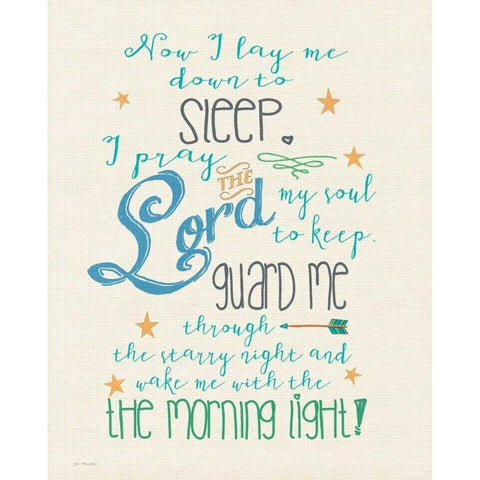 Now I lay me
down to
SLEEP.
I pray THE
Lord my soul
to keep.
guard me
through
the starry night and
wake me with the
the morning light!